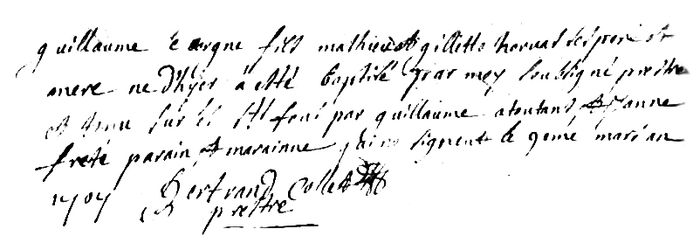 guillaume le orgne fils mathieu et gillette horvas ses pere et
mere ne d'hyer à etté baptisé par mey soubsigné prestre
et tenu sur les sts fons par guillaume et janne
freté parain et maraine signent le 9eme mars an
Bertrand Collet
prestre